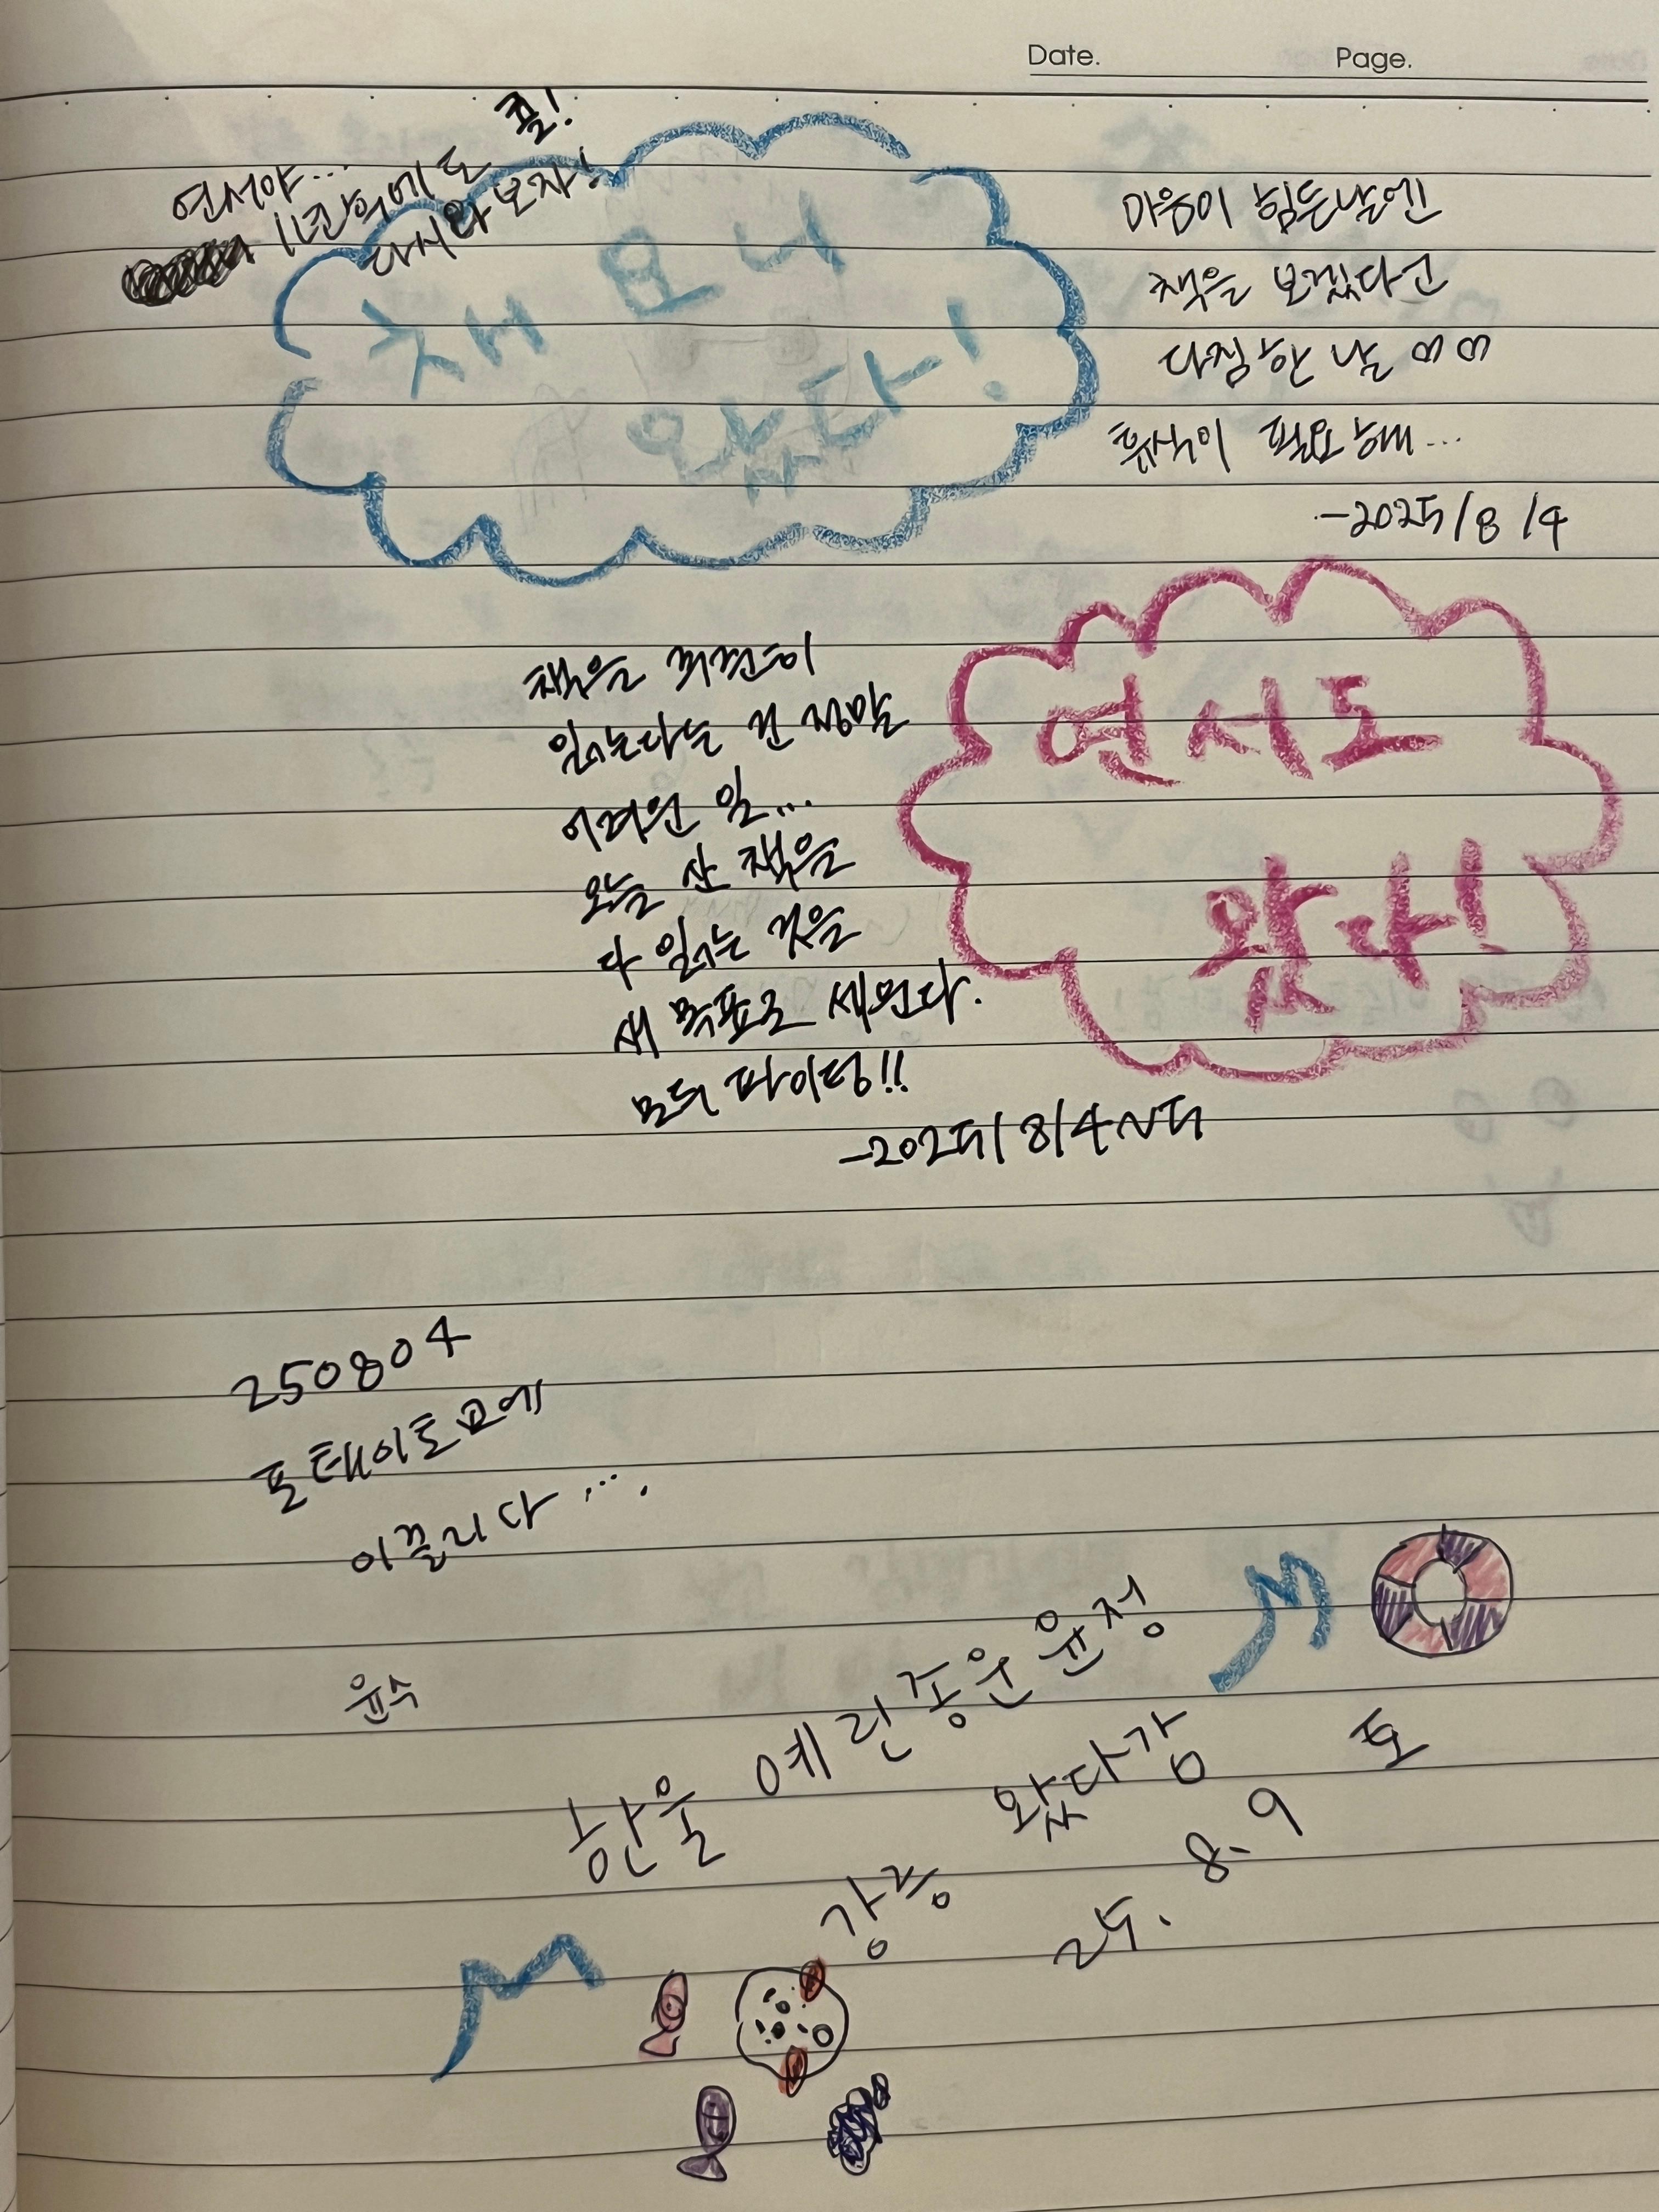 Date. Page.
연서야... 콜!
1년 후에도
다시 와 보자!
채요니
왔다!
마음이 힘든 날엔
책을 보겠다고
다짐한 날
휴식이 필요해...
-2025/8/4
책을 꾸준히
읽는다는 건 정말
어려운 일...
오늘 산 책을
다 읽는 것을
새 목표로 세운다.
모두 파이팅!!
-2025/8/4
연서도
왔다!
250804
포테이토교에
이끌리다....
윤수
한울 예린 종운 윤정
왔다감
강릉
25. 8. 9 토